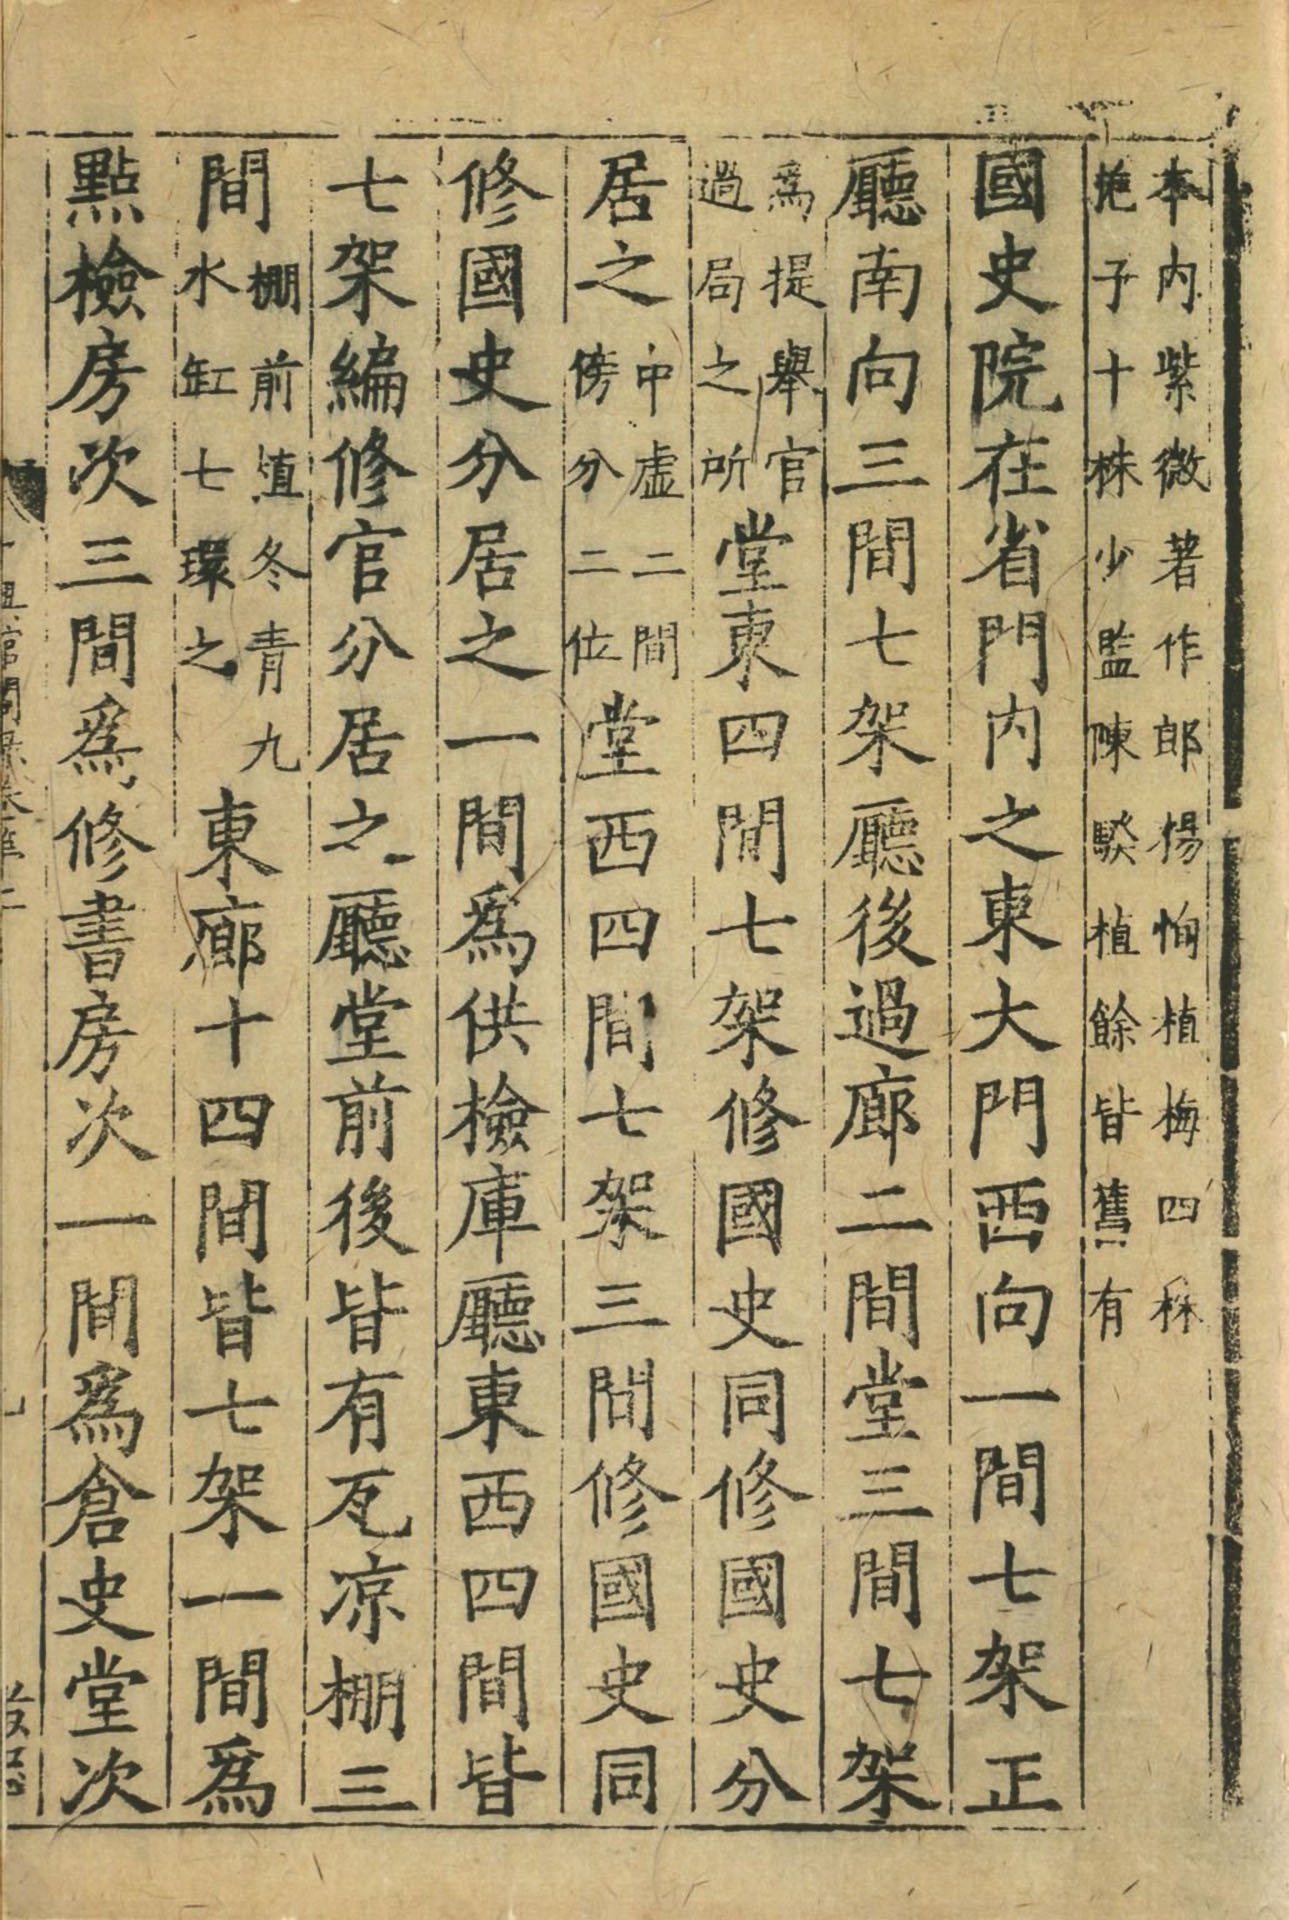 本内紫微著作郎楊恂植梅四株
栀子十株少監陳騤植餘皆舊有
國史院在省門内之東大門西向一間七架正
廳南向三間七架廳後過廊二間堂三間七架
爲提舉官
過局之所
堂東四間七架修國史同修國史分
居之
中虛二間
傍分二位
堂西四間七架三間修國史同
修國史分居之一間爲供檢庫廳東西四間皆
七架編修官分居之廳堂前後皆有瓦凉棚三
間
棚前植冬青九
水缸七環之
東廊十四間皆七架一間爲
點檢房次三間爲修書房次一間爲倉史堂次